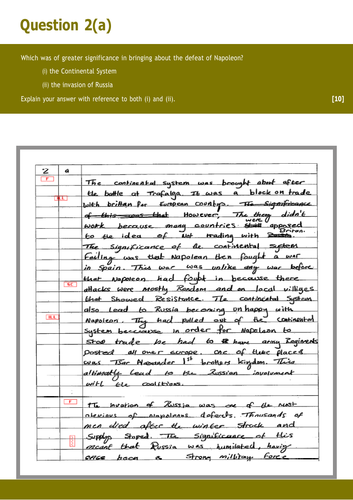 Question 2(a)
Which was of greater significance in bringing about the defeat of Napoleon?
(i) the Continental System
(ii) the invasion of Russia
Explain your answer with reference to both (i) and (ii). [10]
2 a
The continental system was brought about after
the battle at Trafalga. It was a block on trade
with britian for European countrys. The Significance
of this was that However, The they didn't
work because many countries were opposed
to the idea of not trading with Britian.
The significance of the continental system
Failing was that Napolean then fought a war
in Spain. This war was unlike any war before
that Napoleon had fought in because there
attacks were mostly Random and on local villiges
that showed Resistance. The continental System
also lead to Russia becoming unhappy with
Napoleon. They had pulled out of the continental
System because in order for Napoleon to
Stop trade he had to have army Regiments
posted all over europe, one of these places
was Tsar Alexander 1st brothers kingdom. This
ultimatly lead to the Russian involvment
with the coalitions.
The invation of Russia was one of the most
of Napoleons defeats. Thousands of
men died after the winter struck and
Supplys Stoped. The Significance of this
meant that Russia was humiliated, having
once been a Strong military force